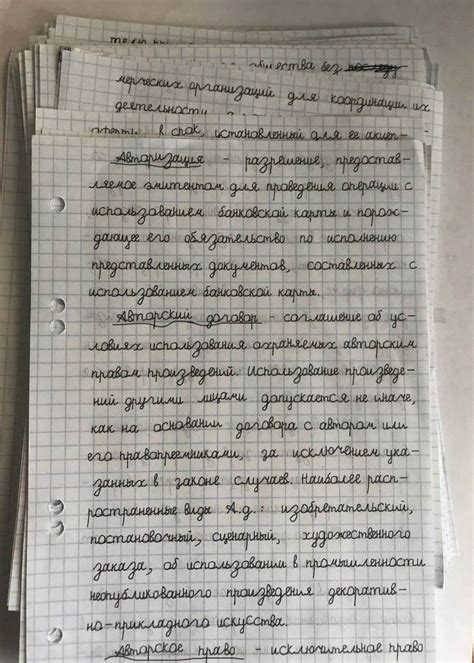 общества без
мерческих организаций для координации их
деятельности
оферты в срок, установленный для ее акцеп-
Авторизация - разрешение, предостав-
ляемое эмитентом для проведения операции с
использованием банковской карты и порож-
дающее его обязательство по исполнению
представленных документов, составленных с
использованием банковской карты.
Авторский договор - соглашение об ус-
ловиях использования охраняемых авторским
правом произведений. Использование произведе-
ний другими лицами допускается не иначе,
как на основании договора с автором или
его правопреемниками, за исключением ука-
занных в законе случаев. Наиболее расп-
ространенные виды А.д.: изобретательский,
постановочный, сценарный, художественного
заказа, об использовании в промышленности
неопубликованного произведения декоратив-
но-прикладного искусства.
Авторское право - исключительное право